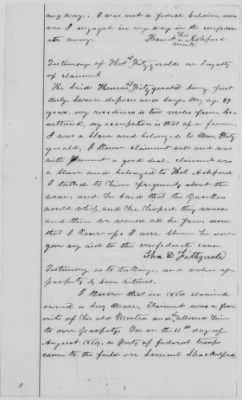 any way. I was not a federal soldier nor
was I engaged in any way in the confeder
ate army.
his
mark
Testimony of Thos. Fitzgerald as to loyalty
of claimant
The said Thomas Fitzgerald being first
duly sworn deposes and says My age 39
years, my residence is two miles from
my occupation is that of a farmer
I was a slave and belonged to
Fitzgerald, I knew claimant well and was
with claimant a good deal, claimant was
a slave and belonged to Thos. Ashford
I talked to him frequently about the
war, and he said that the Yankees
would whip and he hoped they would
and then we would all be free men
that I know of. I am sure he never
gave any aid to the confederate cause
Thos. D Fitzgerald
Testimony as to taking, and value of
property by
I know that in 1864 claimant
owned a bay mare, Claimant was a fav
orite of his old Master and he allowed him
to own property. On or on the 11th day of
August 1864, a party of federal troops
came to the field